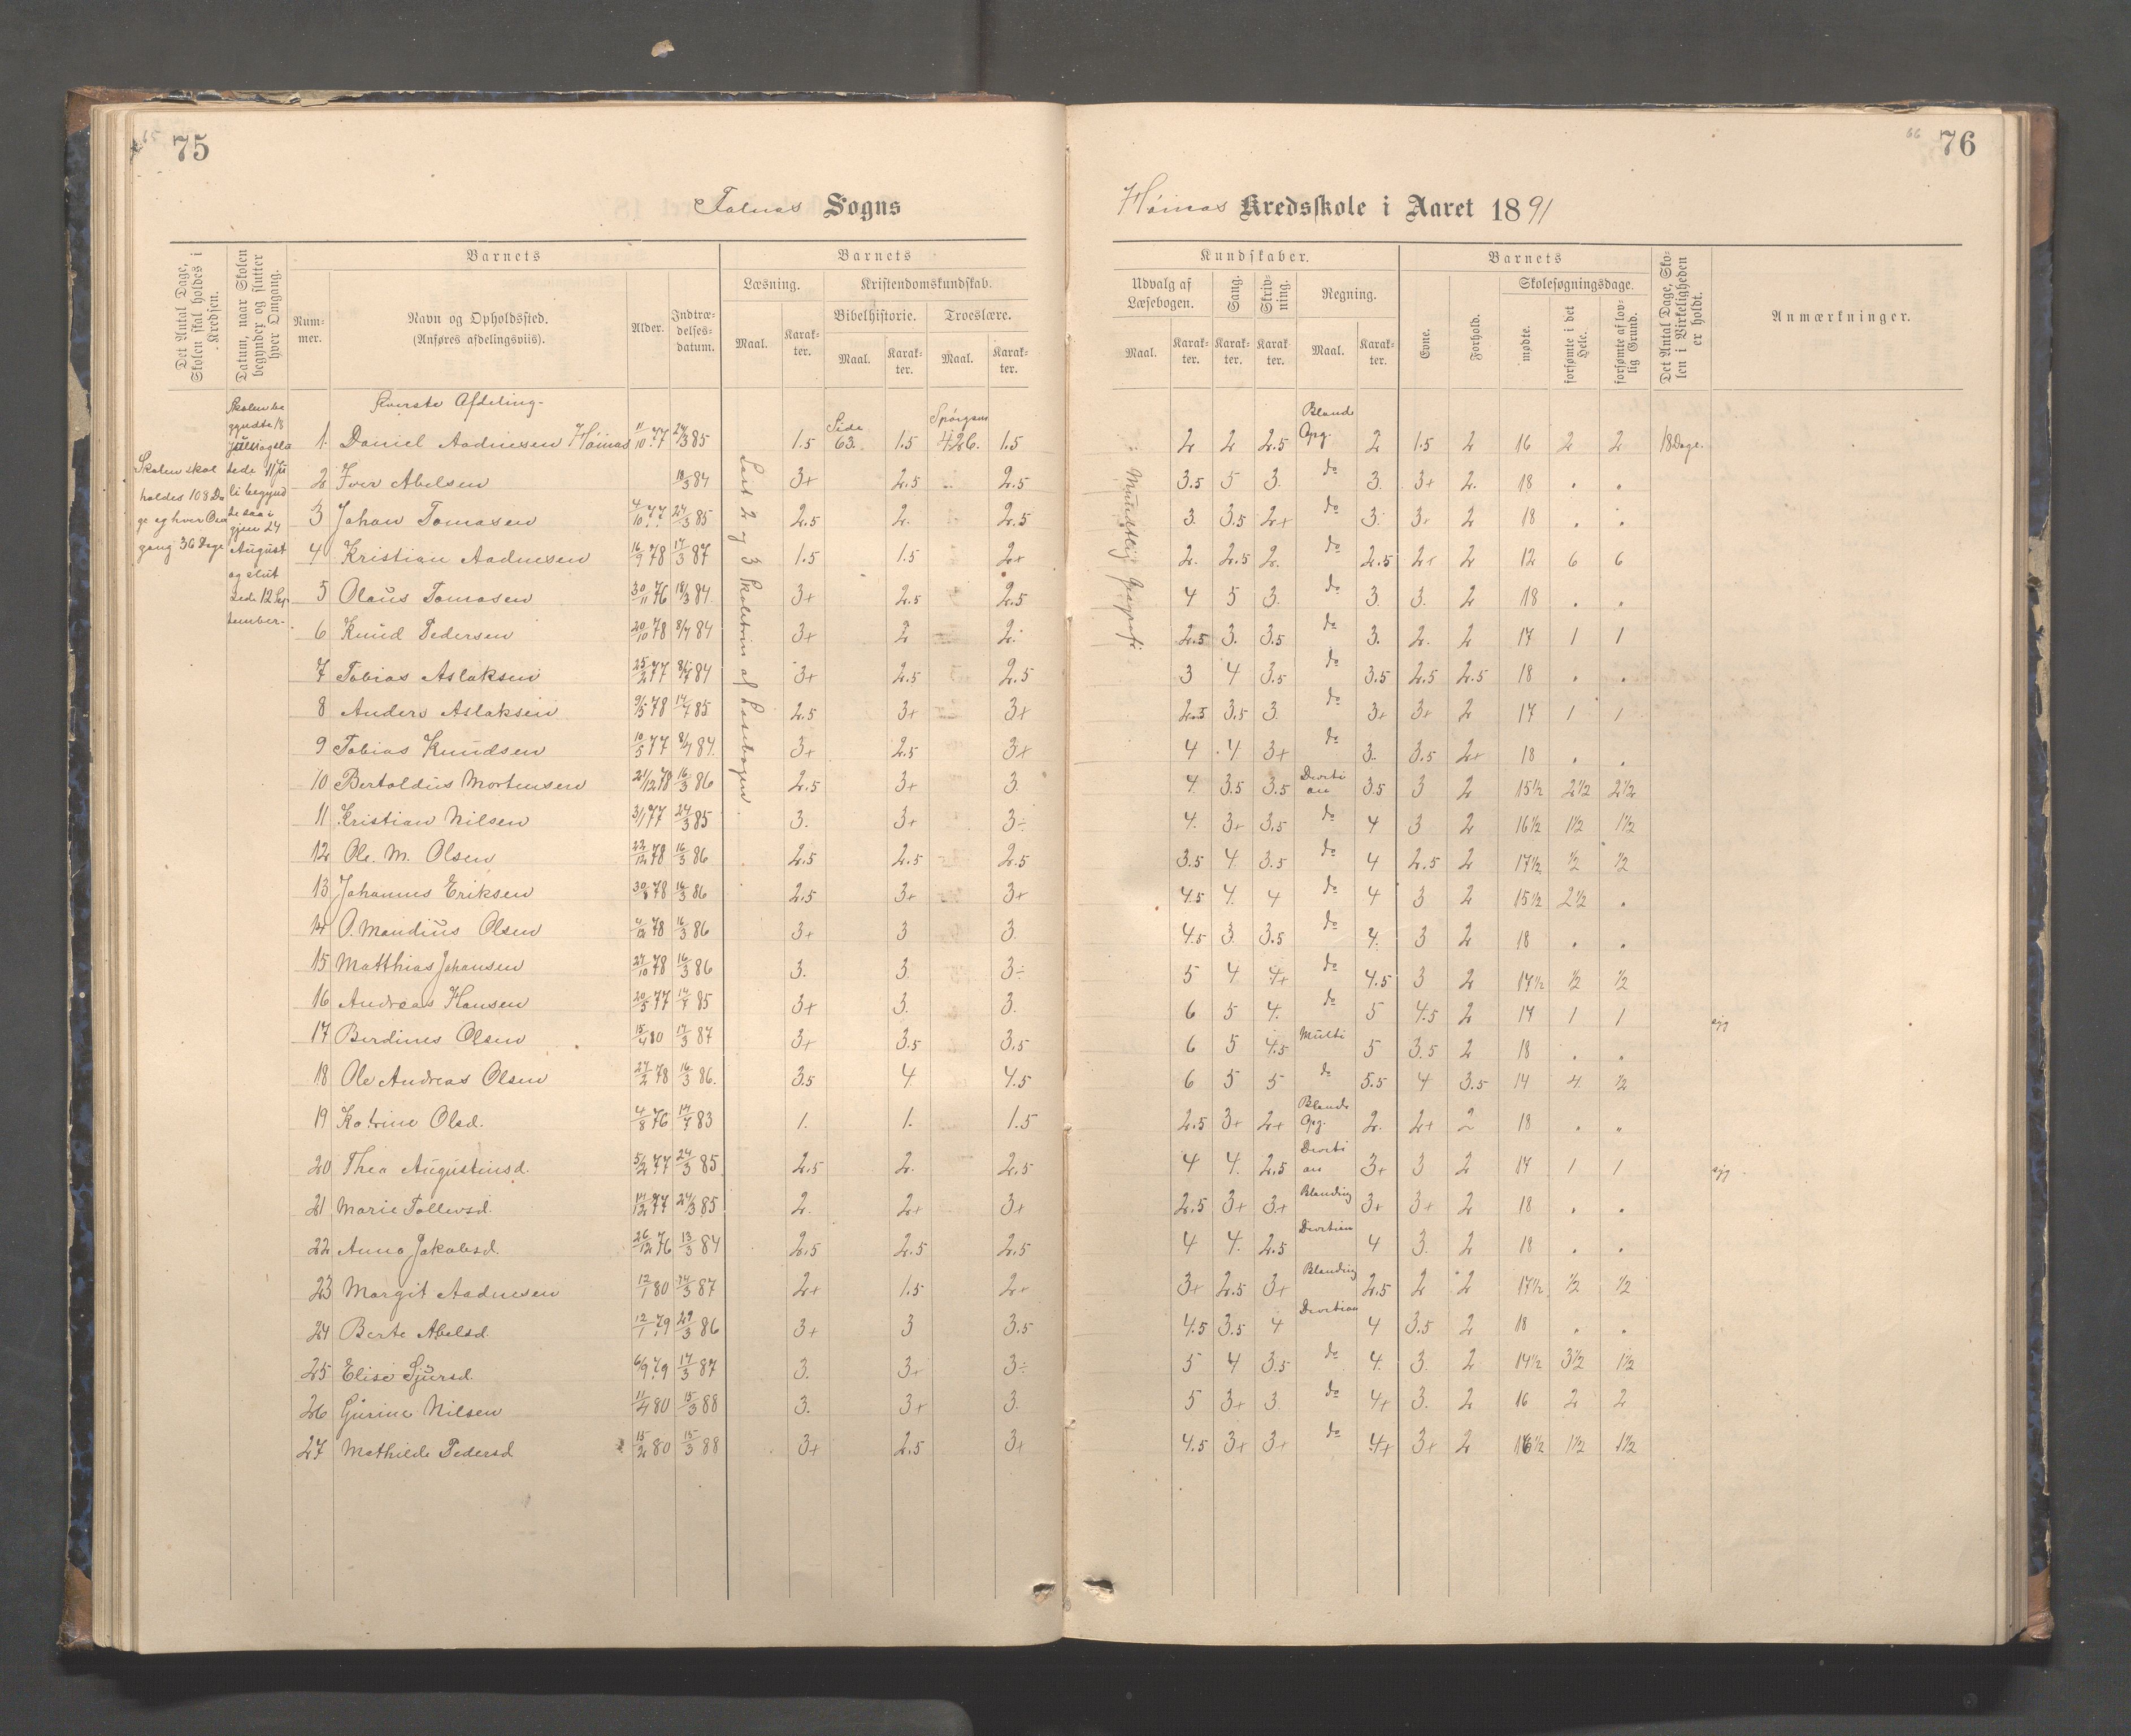 65
75
Falnes Sogns
Det Antal Dage, Skolen skal holdes i Kredsen.
Datum, naar Skolen begynder og slutter hver Omgang.
Barnets
Num-
mer.
Navn og Opholdssted.
(Anføres afdelingsviis).
Alder.
Indtræ-
delses-
datum.
Barnets
Læsning.
Maal.
Karak-
ter.
Kristendomskundskab.
Bibelhistorie.
Troeslære.
Maal.
Karak-
ter.
Maal.
Karak-
ter.
Skolen skal
holdes 108 Da
ge og hver Om
gang 36 Dage
Skolen be
gyndte 18
Juni og slu
tede 11 Ju
li begynd
te saa i
gjen 24
August
og slut
tede 12 Sep
tember.
Øverste Afdeling.
Læst 2 og 3 Skoletrin af Læsebogen.
1. Daniel Aadnesen Høinæs 11/10 77 24/3 85 1.5 Side 63. 1.5 Spørgsm 426. 1.5
2 Iver Abelsen 18/3 84 3+ 2.5 2.5
3 Johan Tomasen 4/10 77 24/3 85 2.5 2. 2.5
4 Kristian Aadnesen 16/9 78 17/3 87 1.5 1.5 2+
5 Olaus Tomasen 30/11 76 18/3 84 3+ 2.5 2.5
6 Knud Pedersen 20/10 78 8/7 84 3+ 2 2.
7 Tobias Aslaksen 25/2 77 8/7 84 3+ 2.5 2.5
8 Anders Aslaksen 9/5 78 14/7 85 2.5 3+ 3+
9 Tobias Knudsen 10/5 77 8/7 84 3+ 2.5 3+
10 Bertoldus Mortensen 21/12 78 16/3 86 2.5 3+ 3.
11 Kristian Nilsen 3/1 77 24/3 85 3. 3+ 3÷
12 Ole. M. Olsen 22/12 78 16/3 86 2.5 2.5 2.5
13 Johannes Eriksen 30/8 78 16/3 86 2.5 3+ 3+
14 O. Mandius Olsen 4/12 78 16/3 86 3+ 3 3.
15 Matthias Johansen 27/10 78 16/3 86 3. 3. 3÷
16 Andreas Hansen 20/5 77 14/7 85 3+ 3. 3.
17 Berdines Olsen 15/4 80 17/3 87 3+ 3.5 3.5
18 Ole Andreas Olsen 27/2 78 16/3 86. 3.5 4. 4.5
19 Katrine Olsd. 4/8 76 17/7 83 1. 1. 1.5
20 Thea Augustinsd. 5/2 77 24/3 85 2.5 2. 2.5
21 Marie Tollevsd. 14/12 77 24/3 85 2. 2+ 3+
22 Anna Jakobsd. 26/12 76 13/3 84 2.5 2.5 2.5
23 Margit Aadnesen 12/1 80 24/3 87 2+ 1.5 2+
24 Berte Abelsd. 12/1 79 29/3 86 3+ 3 3.5
25 Elise Sjursd. 6/9 79 17/3 87 3. 3+ 3÷
26 Gurine Nilsen 11/4 80 15/3 88 3. 3+ 3.
27 Mathilde Pedersd 15/2 80 15/3 88 3+ 2.5 3+
66
76
Høinæs Kredsskole i Aaret 1891
Kundskaber.
Udvalg af
Læsebogen.
Maal.
Karak-
ter.
Sang.
Karak-
ter.
Skriv-
ning.
Karak-
ter.
Regning.
Maal.
Karak-
ter.
Barnets
Evne.
Forhold.
Skolesøgningsdage.
mødte.
forsømte i det Hele.
forsømte af lov-
lig Grund.
Det Antal Dage, Sko-
len i Virkeligheden
er holdt.
Anmærkninger.
Mundtlig Geografi
2 2 2.5 Bland Opg. 2 1.5 2 16 2 2 18 Dage.
3.5 5 3. do 3. 3+ 2. 18 . .
3. 3.5 2+ do 3. 3+ 2 18 . .
2. 2.5 2. do 2.5 2+ 2 12 6 6
4 5 3. do 3. 3. 2 18 . .
2.5 3. 3.5 do 3. 2. 2 17 1 1
3 4 3.5 do 3.5 2.5 2.5 18 . .
2.5 3.5 3. do 3+ 3+ 2 17 1 1
4 4 3+ do 3. 3.5 2+ 18 . .
4. 3.5 3.5 Diviti on 3.5 3 2 15½ 2½ 2½
4. 3+ 3.5 do 4 3 2 16½ 1½ 1½
3.5 4 3.5 do 4 2.5 2 17½ ½ ½
4.5 4. 4 do 4 3 2 15½ 2½ .
4.5 3. 3.5 do 4. 3 2 18 . .
5 4 4+ do 4.5 3 2 17½ ½ ½
6 5 4. do 5 4.5 2 17 1 1 syg
6 5 4.5 Multi 5 3.5 2 18 . .
6 5 5 do 5.5 4 3.5 14 4. ½
2.5 3+ 2+ Blande Opg. 2. 2+ 2 18 . „
4 4. 2.5 Diviti on 3+ 3 2 17 1 1 syg
2.5 3+ 3+ Blanding 3+ 3+ 2 18 . .
4 4. 2.5 Divition 4 3. 2 18 . .
3+ 2.5 3+ Blanding 2.5 2 2 17½ ½ ½
4.5 3.5 4 Divition 4 3.5 2 18 . .
5 4 3.5 do 4. 3. 2 14½ 3½ 1½
5 3+ 3. do 4+ 3. 2 16 2 2
4.5 3+ 3+ do 4+ 3+ 2 16½ 1½ 1½